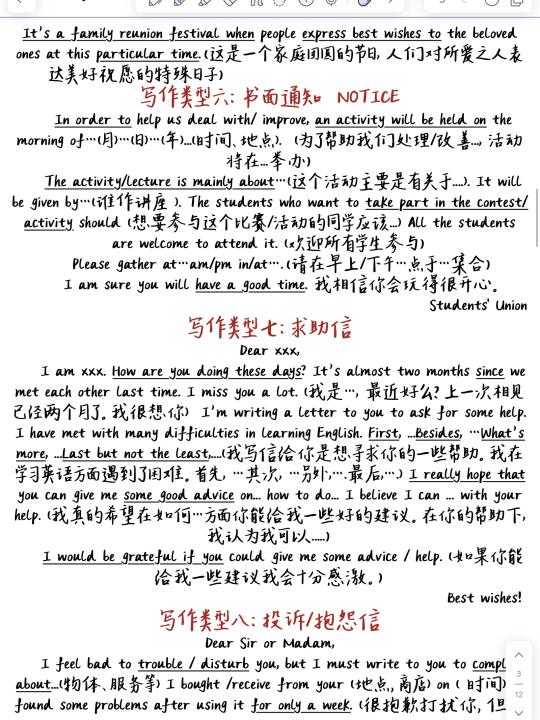 It's a family reunion festival when people express best wishes to the beloved
ones at this particular time.(这是一个家庭团圆的节日, 人们对所爱之人表
达美好祝愿的特殊日子)
写作类型六: 书面通知 NOTICE
In order to help us deal with/ improve, an activity will be held on the
morning of…(月)…(日)…(年)…(时间、地点). (为了帮助我们处理/改善…, 活动
将在…举办)
The activity/lecture is mainly about…(这个活动主要是有关于....). It will
be given by…(谁作讲座 ). The students who want to take part in the contest/
activity should (想要参与这个比赛/活动的同学应该…) All the students
are welcome to attend it. (欢迎所有学生参与)
Please gather at…am/pm in/at….(请在早上/下午…点于…集合)
I am sure you will have a good time. 我相信你会玩得很开心。
Students' Union
写作类型七: 求助信
Dear xxx,
I am xxx. How are you doing these days? It's almost two months since we
met each other last time. I miss you a lot. (我是…, 最近好么? 上一次相见
已经两个月了。我很想你) I'm writing a letter to you to ask for some help.
I have met with many difficulties in learning English. First, …Besides, …What's
more, …Last but not the least,….(我写信给你是想寻求你的一些帮助。我在
学习英语方面遇到了困难。首先, …其次, …另外,….最后,….) I really hope that
you can give me some good advice on… how to do… I believe I can … with your
help. (我真的希望在如何…方面你能给我一些好的建议。在你的帮助下,
我认为我可以.....)
I would be grateful if you could give me some advice / help. (如果你能
给我一些建议我会十分感激。)
Best wishes!
写作类型八: 投诉/抱怨信
Dear Sir or Madam,
I feel bad to trouble / disturb you, but I must write to you to compl
about…(物体、服务等) I bought /receive from your (地点, 商店) on ( 时间)
found some problems after using it for only a week. (很抱歉打扰你, 但
3
12